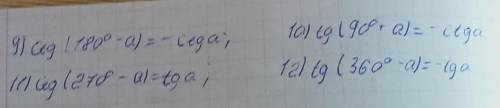 9) ctg (180° - a) = - ctg a; 10) tg (90° + a) = - ctg a
11) ctg (270° - a) = tg a; 12) tg (360° - a) = - tg a